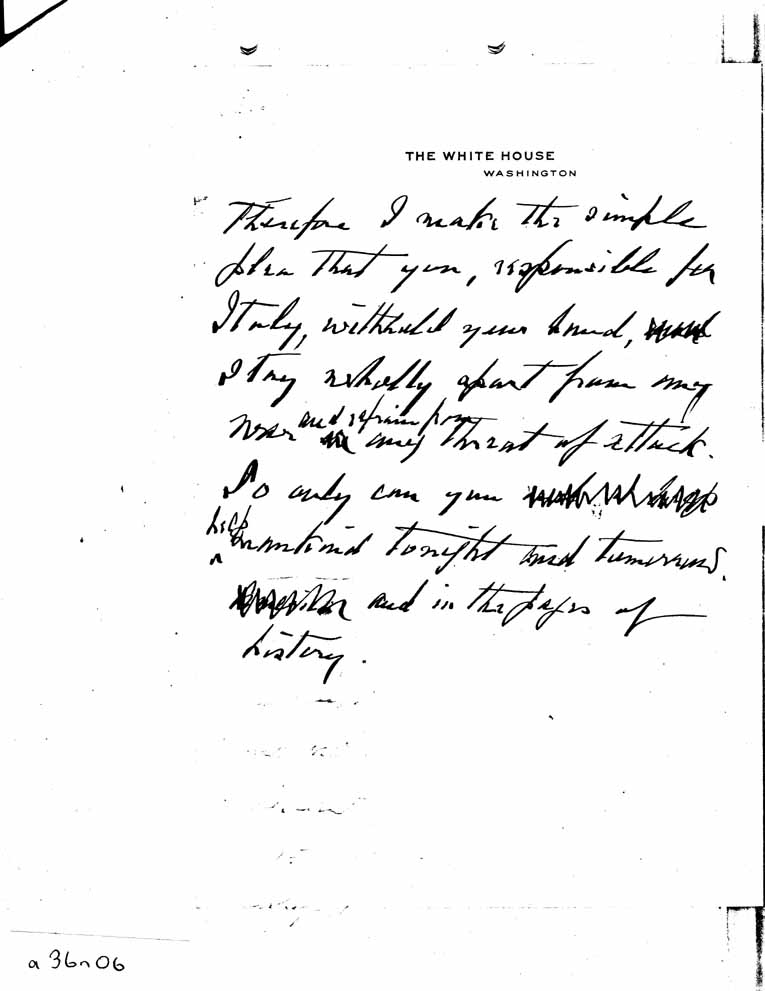 THE WHITE HOUSE
WASHINGTON
Therefore I make the simple
plea that you, responsible for
Italy, withhold your hand,
stay wholly apart from any
war and refrain from any threat of attack.
So only can you
help mankind tonight and tomorrow
and in the pages of
history.
a36n06